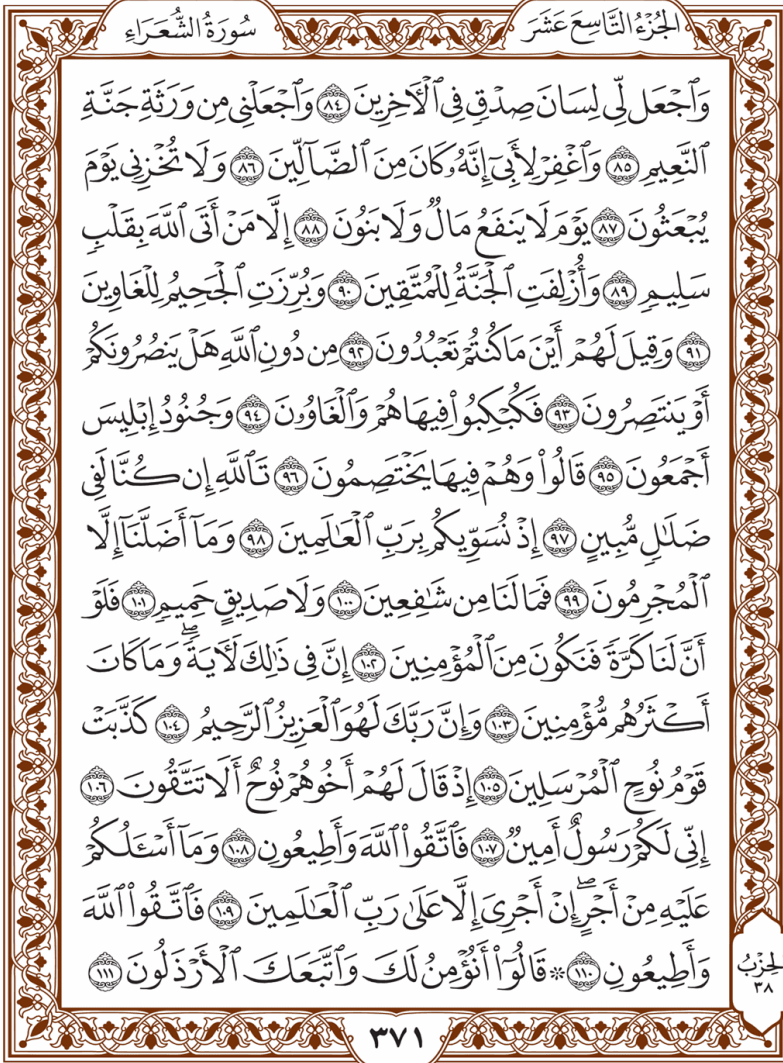 الجُزْءُ التَّاسِعَ عَشَرَ
سُورَةُ الشُّعَرَاءِ
وَٱجْعَل لِّى لِسَانَ صِدْقٍ فِى ٱلْأَخِرِينَ ٨٤ وَٱجْعَلْنِى مِن وَرَثَةِ جَنَّةِ
ٱلنَّعِيمِ ٨٥ وَٱغْفِرْ لِأَبِىٓ إِنَّهُۥ كَانَ مِنَ ٱلضَّآلِّينَ ٨٦ وَلَا تُخْزِنِى يَوْمَ
يُبْعَثُونَ ٨٧ يَوْمَ لَا يَنفَعُ مَالٌ وَلَا بَنُونَ ٨٨ إِلَّا مَنْ أَتَى ٱللَّهَ بِقَلْبٍ
سَلِيمٍ ٨٩ وَأُزْلِفَتِ ٱلْجَنَّةُ لِلْمُتَّقِينَ ٩٠ وَبُرِّزَتِ ٱلْجَحِيمُ لِلْغَاوِينَ
٩١ وَقِيلَ لَهُمْ أَيْنَ مَا كُنتُمْ تَعْبُدُونَ ٩٢ مِن دُونِ ٱللَّهِ هَلْ يَنصُرُونَكُمْ
أَوْ يَنتَصِرُونَ ٩٣ فَكُبْكِبُوا۟ فِيهَا هُمْ وَٱلْغَاوُۥنَ ٩٤ وَجُنُودُ إِبْلِيسَ
أَجْمَعُونَ ٩٥ قَالُوا۟ وَهُمْ فِيهَا يَخْتَصِمُونَ ٩٦ تَٱللَّهِ إِن كُنَّا لَفِى
ضَلَٰلٍ مُّبِينٍ ٩٧ إِذْ نُسَوِّيكُم بِرَبِّ ٱلْعَٰلَمِينَ ٩٨ وَمَآ أَضَلَّنَآ إِلَّا
ٱلْمُجْرِمُونَ ٩٩ فَمَا لَنَا مِن شَٰفِعِينَ ١٠٠ وَلَا صَدِيقٍ حَمِيمٍ ١٠١ فَلَوْ
أَنَّ لَنَا كَرَّةً فَنَكُونَ مِنَ ٱلْمُؤْمِنِينَ ١٠٢ إِنَّ فِى ذَٰلِكَ لَأَيَةً ۖ وَمَا كَانَ
أَكْثَرُهُم مُّؤْمِنِينَ ١٠٣ وَإِنَّ رَبَّكَ لَهُوَ ٱلْعَزِيزُ ٱلرَّحِيمُ ١٠٤ كَذَّبَتْ
قَوْمُ نُوحٍ ٱلْمُرْسَلِينَ ١٠٥ إِذْ قَالَ لَهُمْ أَخُوهُمْ نُوحٌ أَلَا تَتَّقُونَ ١٠٦
إِنِّى لَكُمْ رَسُولٌ أَمِينٌ ١٠٧ فَٱتَّقُوا۟ ٱللَّهَ وَأَطِيعُونِ ١٠٨ وَمَآ أَسْـَٔلُكُمْ
عَلَيْهِ مِنْ أَجْرٍ ۖ إِنْ أَجْرِىَ إِلَّا عَلَىٰ رَبِّ ٱلْعَٰلَمِينَ ١٠٩ فَٱتَّقُوا۟ ٱللَّهَ
وَأَطِيعُونِ ١١٠ ۞ قَالُوٓا۟ أَنُؤْمِنُ لَكَ وَٱتَّبَعَكَ ٱلْأَرْذَلُونَ ١١١
الحِزْبُ
٣٨
٣٧١